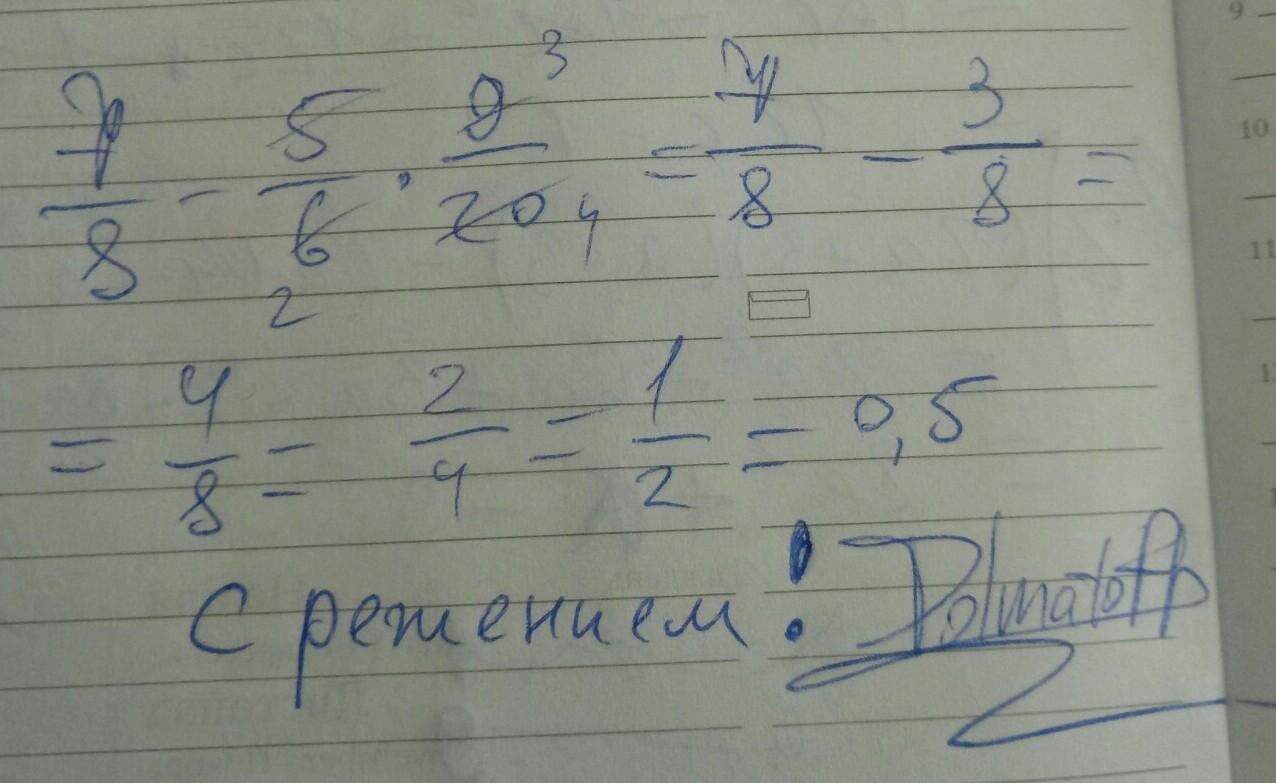 7/8 - 5/6 · 9/20 = 7/8 - 3/8 =
3
4
2
= 4/8 = 2/4 = 1/2 = 0,5
С режением! Dolmatoff
9
10
11